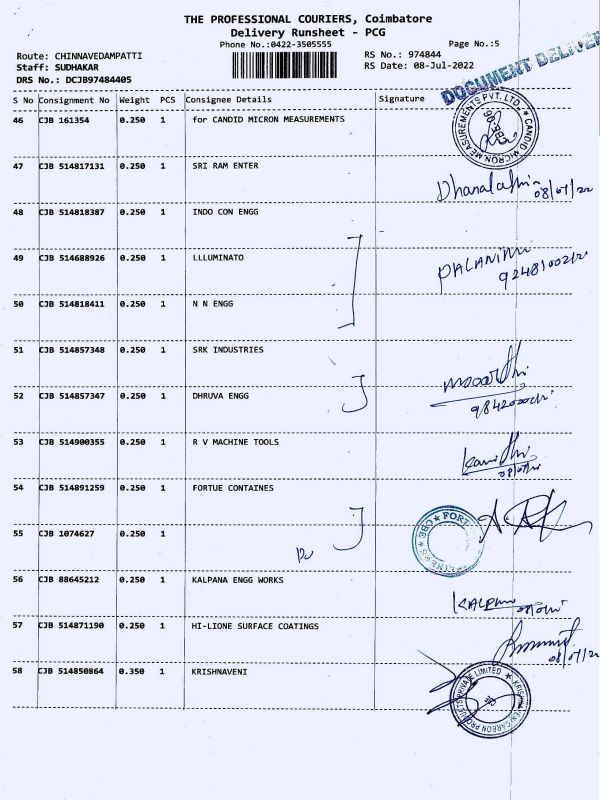 THE PROFESSIONAL COURIERS, Coimbatore
Delivery Runsheet - PCG
Phone No.:0422-3505555
Page No.:5
Route: CHINNAVEDAMPATTI
RS No.: 974844
Staff: SUDHAKAR
RS Date: 08-Jul-2022
DRS No.: DCJB97484405
DOCUMENT DELIVER
S No Consignment No Weight PCS Consignee Details Signature
46 CJB 161354 0.250 1 for CANDID MICRON MEASUREMENTS
CANDID MICRON MEASUREMENTS PVT. LTD.
CBE-06
47 CJB 514817131 0.250 1 SRI RAM ENTER
08/07/22
48 CJB 514818387 0.250 1 INDO CON ENGG
49 CJB 514688926 0.250 1 LLLUMINATO
50 CJB 514818411 0.250 1 N N ENGG
51 CJB 514857348 0.250 1 SRK INDUSTRIES
52 CJB 514857347 0.250 1 DHRUVA ENGG
53 CJB 514900355 0.250 1 R V MACHINE TOOLS
54 CJB 514891259 0.250 1 FORTUE CONTAINES
55 CJB 1074627 0.250 1
56 CJB 88645212 0.250 1 KALPANA ENGG WORKS
57 CJB 514871190 0.250 1 HI-LIONE SURFACE COATINGS
08/07/22
58 CJB 514850864 0.350 1 KRISHNAVENI
KRISHNAVENI CARBON PRODUCTS PRIVATE LIMITED